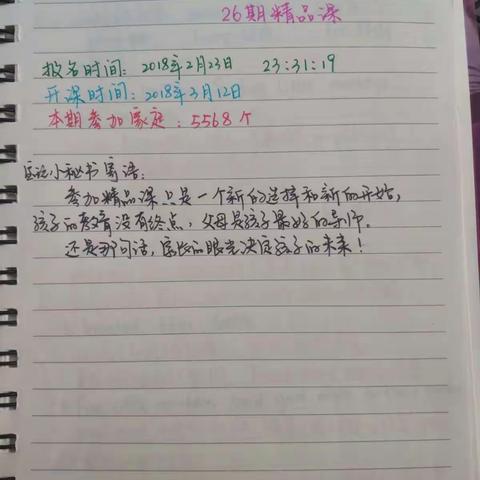 26期精品课
报名时间：2018年2月23日 23:31:19
开课时间：2018年3月12日
本期参加家庭：5568个
小秘书寄语：
参加精品课只是一个新的选择和新的开始，
孩子的教育没有终点，父母是孩子最好的导师。
还是那句话，家长的眼光决定孩子的未来！